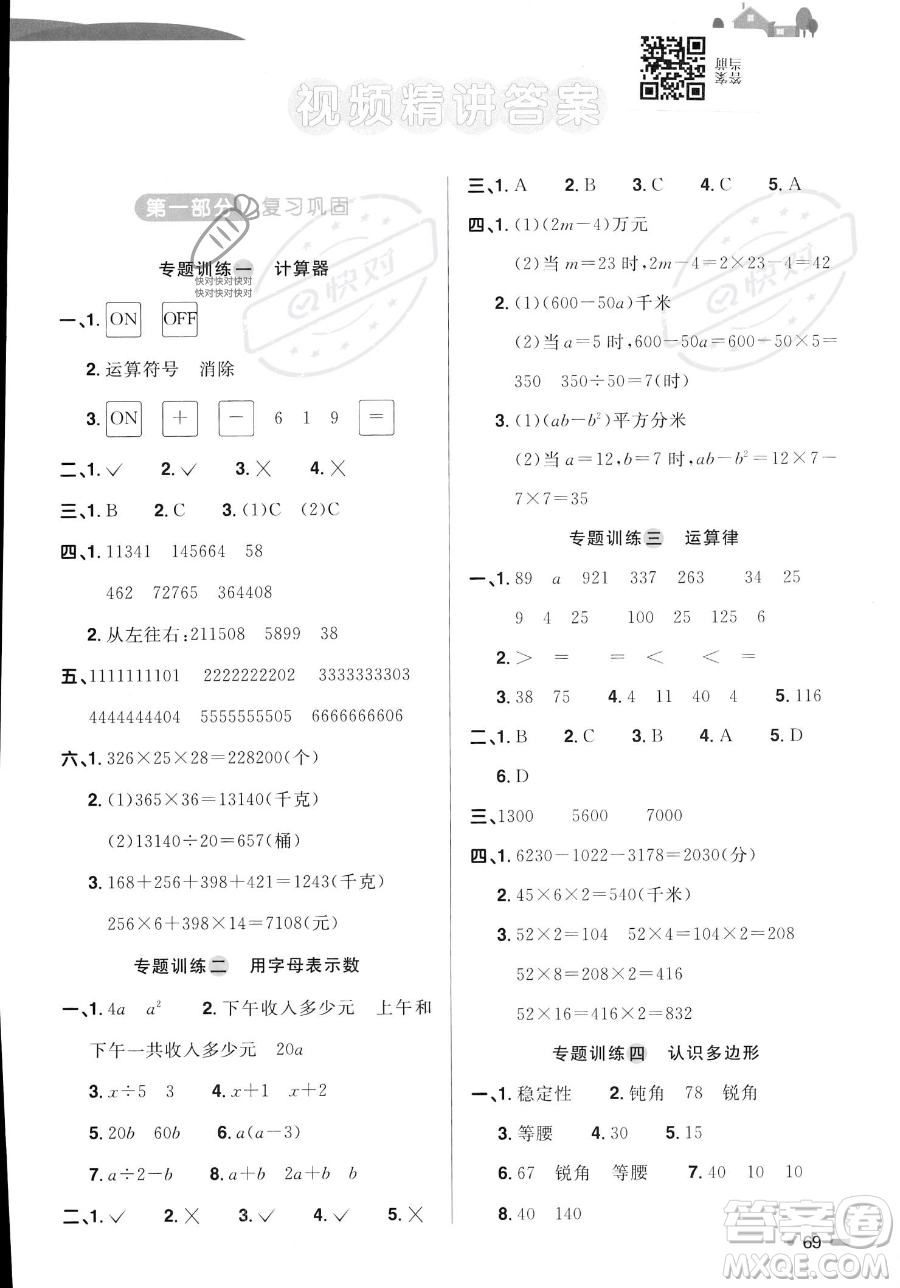 当前
答案
视频精讲答案
第一部分 复习巩固
快对快对快对
快对快对快对
专题训练一 计算器
一、1. ON OFF
2. 运算符号 消除
3. ON + − 6 1 9 =
二、1. ✓ 2. ✓ 3. ✕ 4. ✕
三、1. B 2. C 3. (1)C (2)C
四、1. 11341 145664 58
462 72765 364408
2. 从左往右:211508 5899 38
五、1111111101 2222222202 3333333303
4444444404 5555555505 6666666606
六、1. 326×25×28=228200(个)
2. (1)365×36=13140(千克)
(2)13140÷20=657(桶)
3. 168+256+398+421=1243(千克)
256×6+398×14=7108(元)
专题训练二 用字母表示数
一、1. 4a a² 2. 下午收入多少元 上午和
下午一共收入多少元 20a
3. x÷5 3 4. x+1 x+2
5. 20b 60b 6. a(a−3)
7. a÷2−b 8. a+b 2a+b 16
二、1. ✓ 2. ✕ 3. ✕ 4. ✓ 5. ✕
三、1. A 2. B 3. C 4. C 5. A
四、1. (1)(2m−4)万元
(2)当 m=23 时,2m−4=2×23−4=42
2. (1)(600−50a)千米
(2)当 a=5 时,600−50a=600−50×5=
350 350÷50=7(时)
3. (1)(ab−b²)平方分米
(2)当 a=12,b=7 时,ab−b²=12×7−
7×7=35
专题训练三 运算律
一、1. 89 a 921 337 263 34 25
9 4 25 100 25 125 6
2. > = = < < =
3. 38 75 4. 4 11 40 4 5. 116
二、1. B 2. C 3. A 4. A 5. D
6. D
三、1300 5600 7000
四、1. 6230−1022−3178=2030(分)
2. 45×6×2=540(千米)
3. 52×2=104 52×4=104×2=208
52×8=208×2=416
52×16=416×2=832
专题训练四 认识多边形
一、1. 稳定性 2. 钝角 78 锐角
3. 等腰 4. 30 5. 15
6. 67 锐角 等腰 7. 40 10 10
8. 40 140
69
快对
快对
答案圈
MXQE.COM